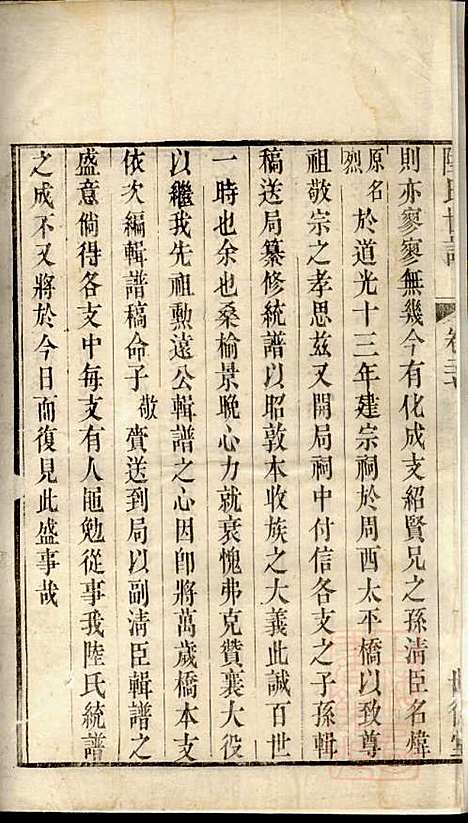 陸氏世譜 卷三
則亦寥寥無幾今有化成支紹賢兄之孫清臣名煒
原名烈於道光十三年建宗祠於周西太平橋以致尊
祖敬宗之孝思茲又開局祠中付信各支之子孫輯
稿送局纂修統譜以昭敦本收族之大義此誠百世
一時也余也桑榆景晚心力就衰愧弗克贊襄大役
以繼我先祖勳遠公輯譜之心因卽將萬歲橋本支
依次編輯譜稿命子敬賫送到局以副清臣輯譜之
盛意倘得各支中每支有人黽勉從事我陸氏統譜
之成不又將於今日而復見此盛事哉